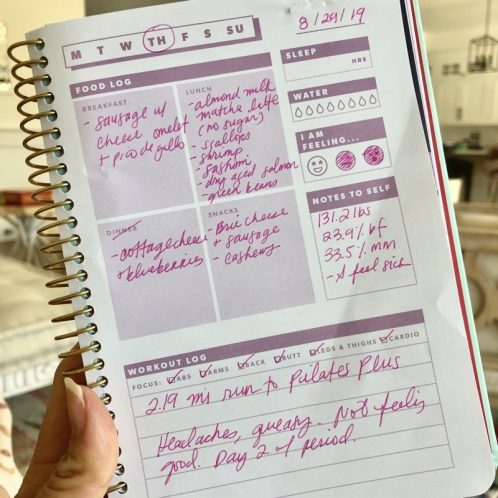 M T W TH F S SU
8/29/19
FOOD LOG
BREAKFAST
- sausage w/
cheese omelet
+ pico de gallo
LUNCH
- almond milk
matcha latte
(no sugar)
- scallops
- shrimp
- sashimi
- dry aged salmon
- green beans
DINNER
- cottage cheese
+ blueberries
SNACKS
- Brie cheese
+ sausage
- cashews
SLEEP
HRS
WATER
I AM
FEELING...
NOTES TO SELF
131.2 lbs
23.9% bf
33.5% mm
- feel sick
WORKOUT LOG
FOCUS: ABS ARMS BACK BUTT LEGS & THIGHS CARDIO
2.19 mi run to Pilates Plus
Headaches, queasy... Not feeling
good. Day 2 of period.